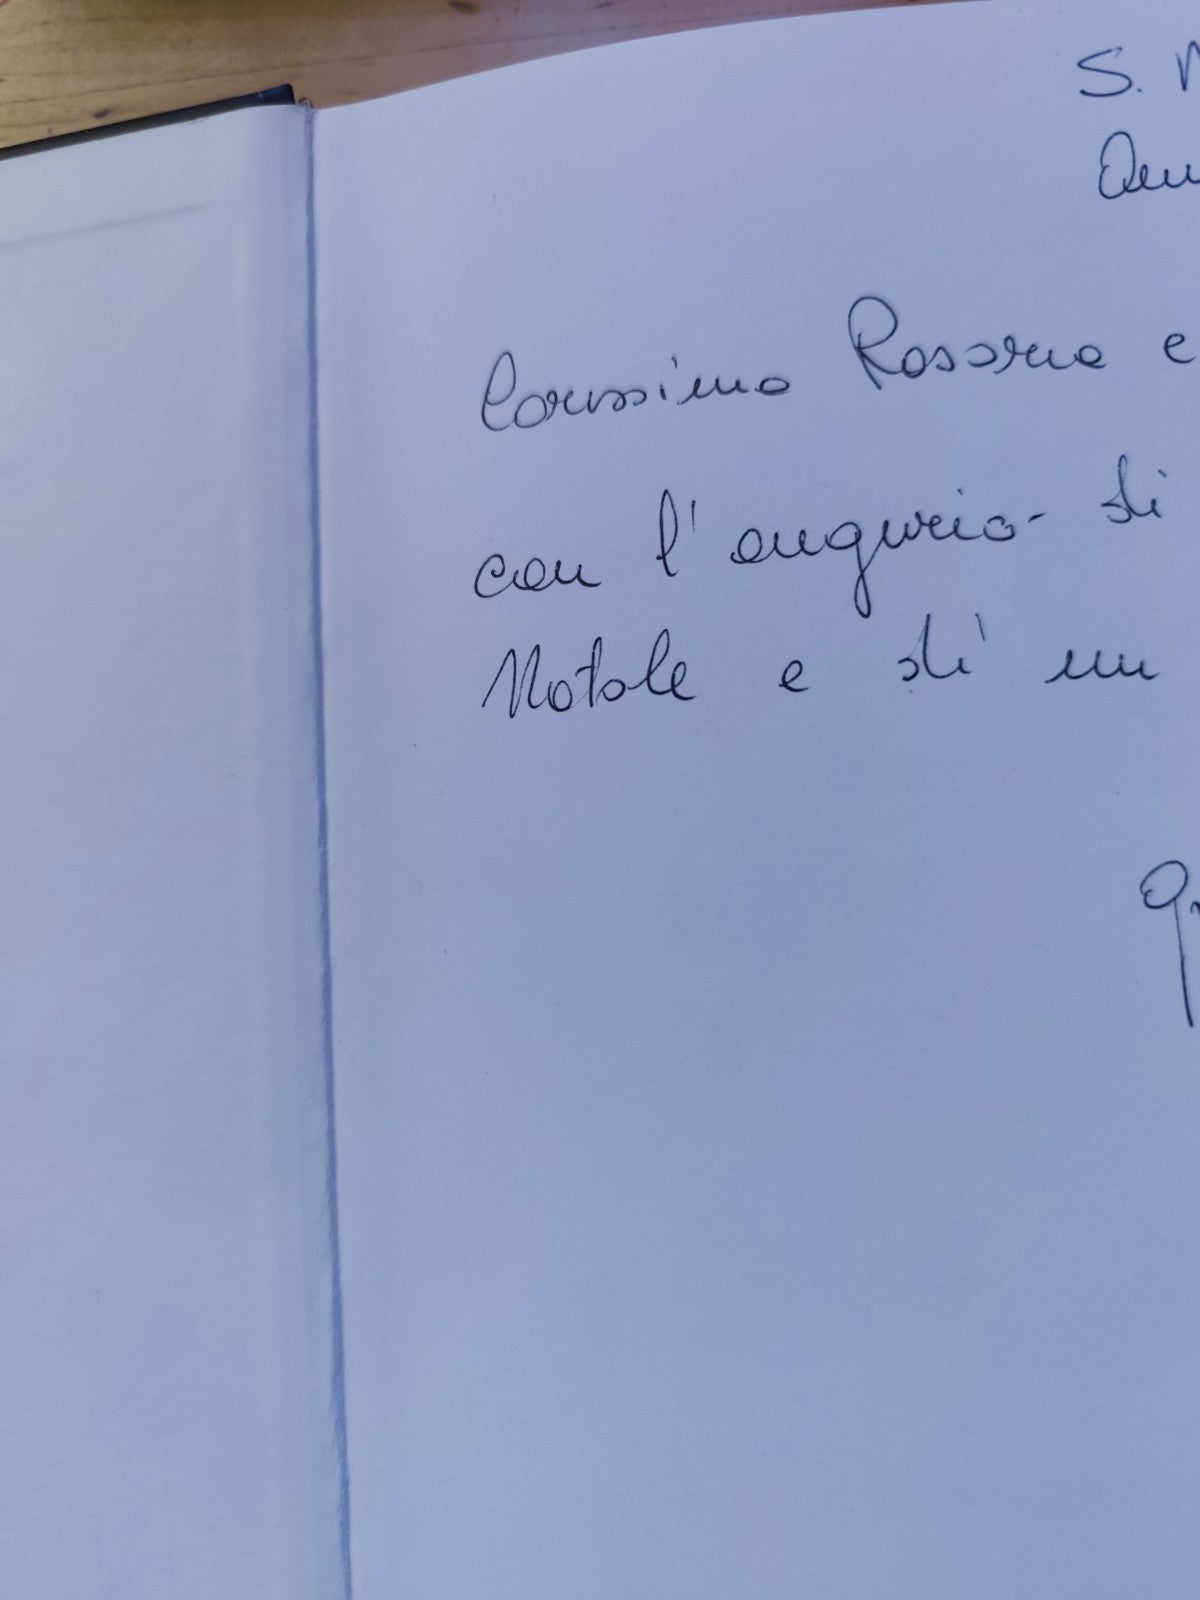 S.
Carissima Rosaria e
con l'augurio di
Natale e di un